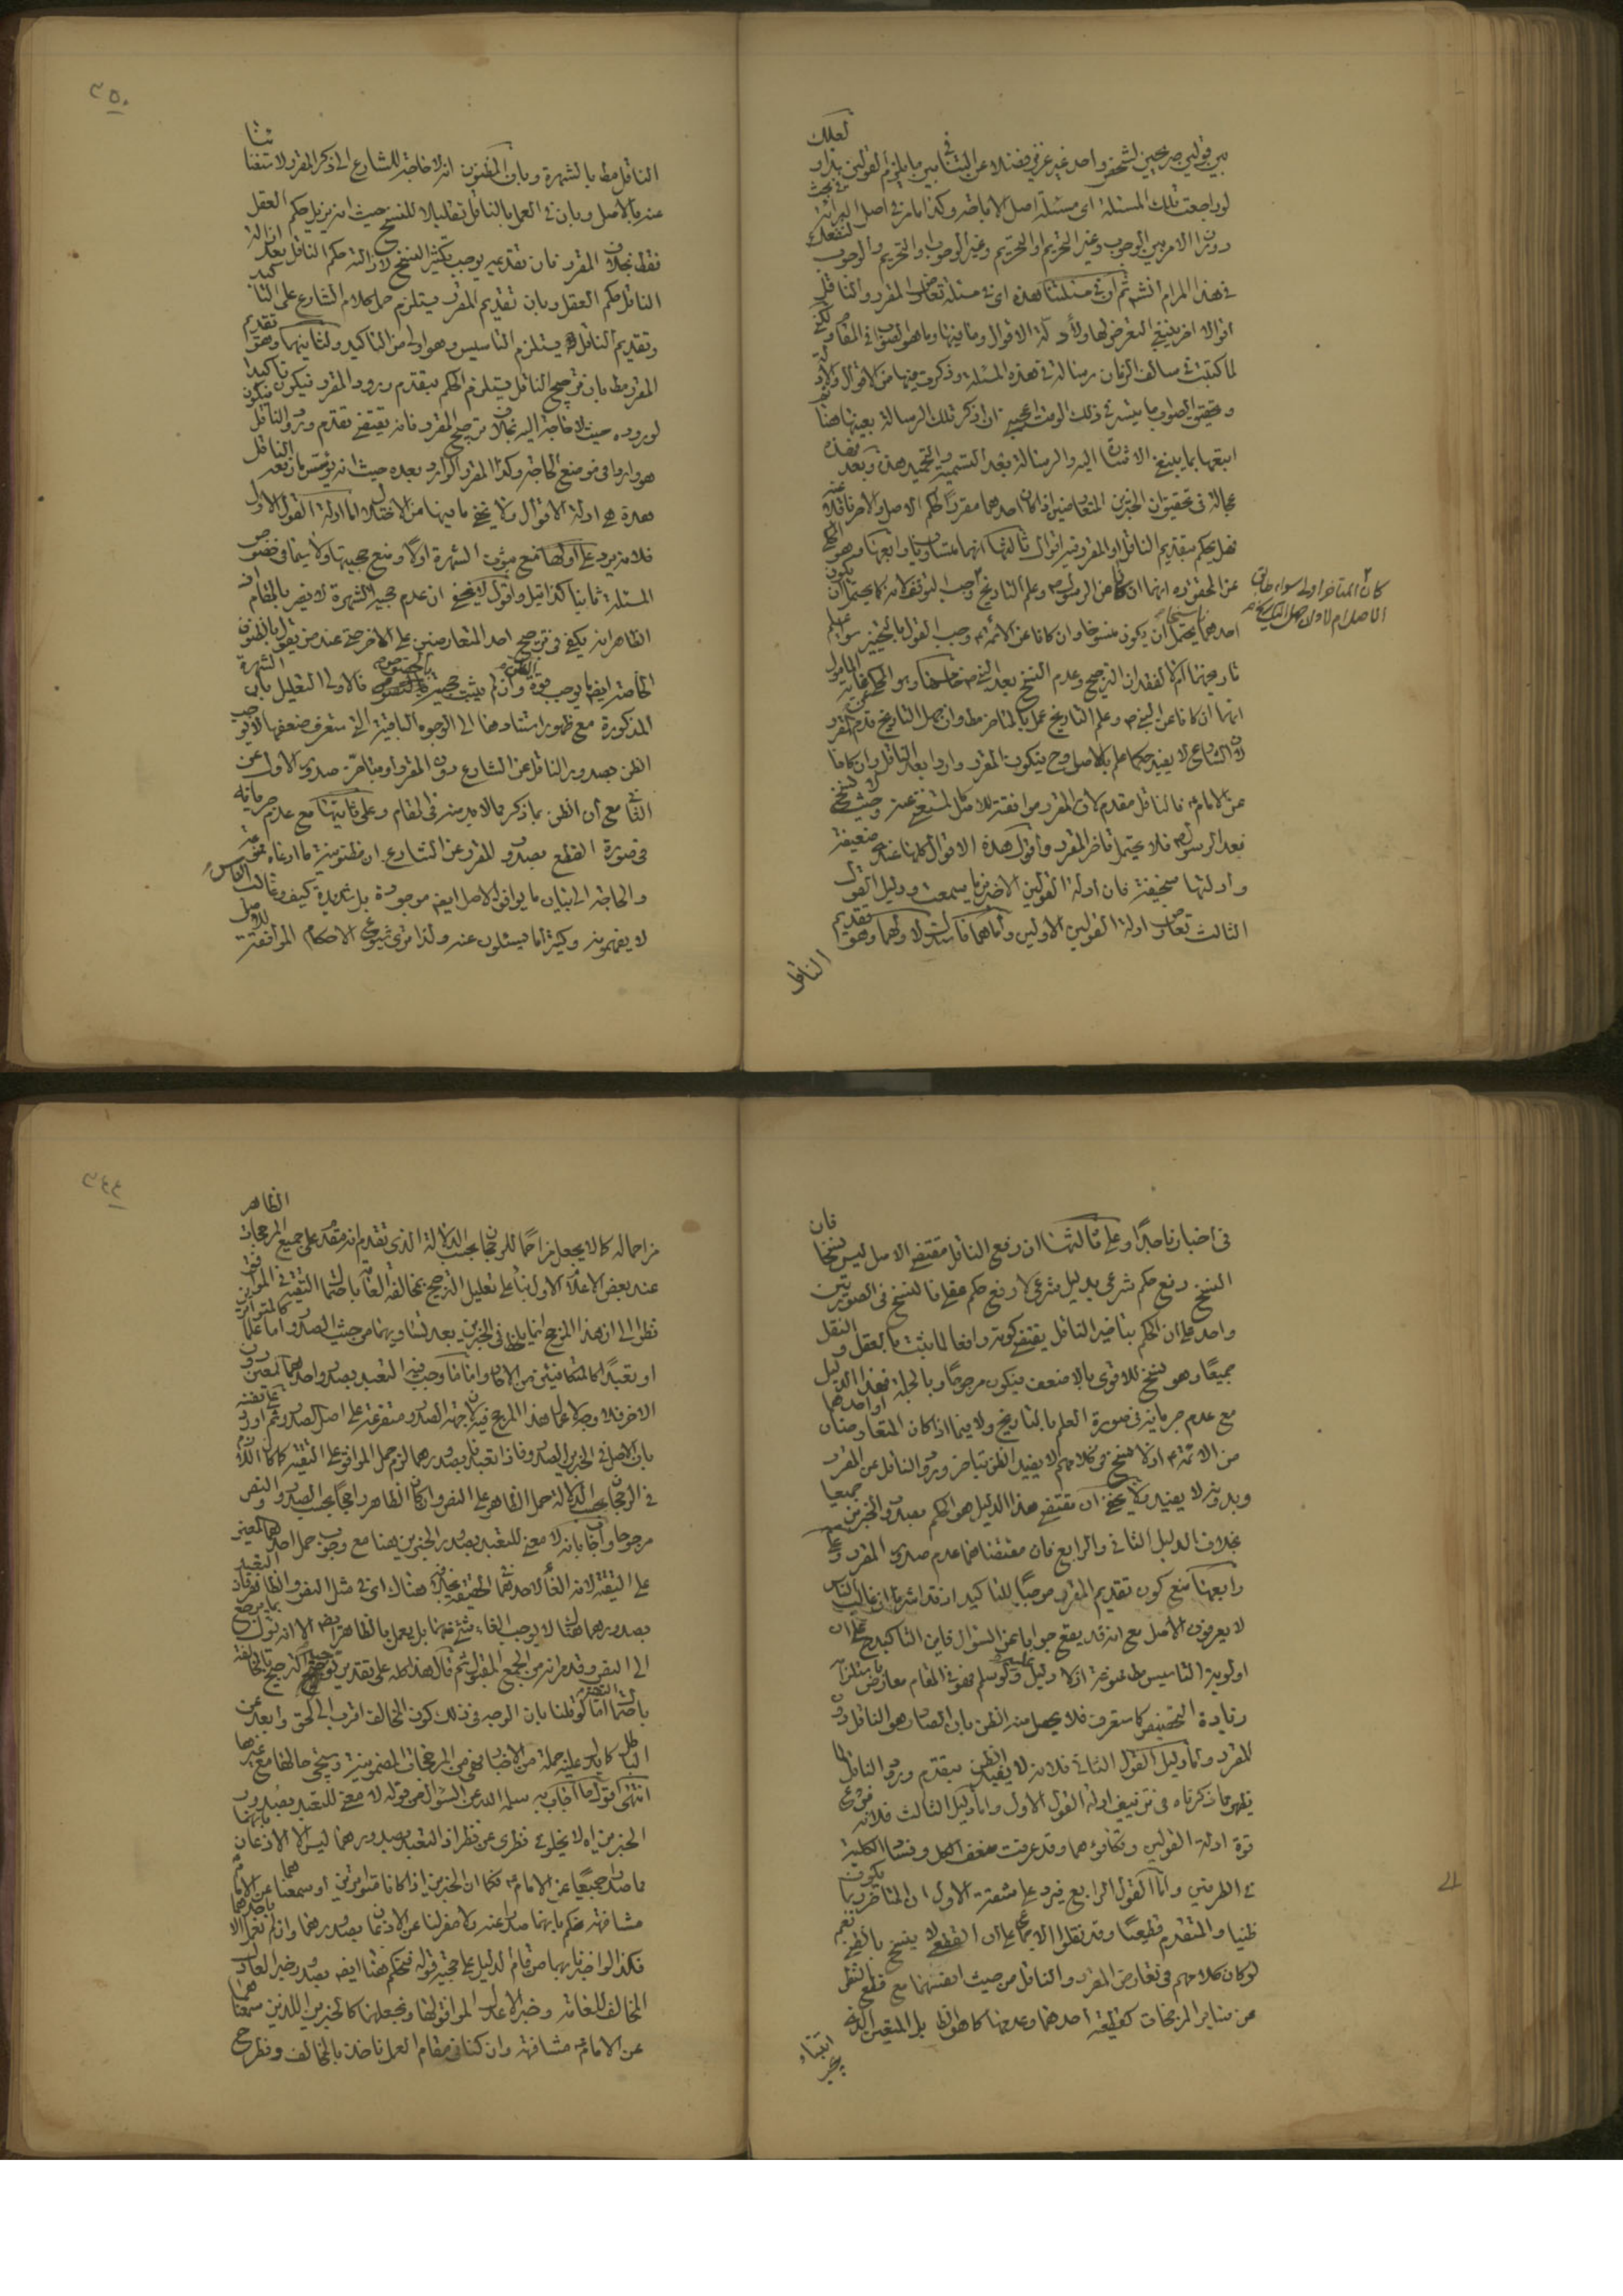 بين قولين صريحين لشخص واحد غير عزيز فضلا عن التنافي بين ما يلزم القولين بذا و لعلك
لو راجعت تلك المسئلة اى مسئلة اصل الاباحة وكذا ما مر فى اصل البرائة فى بحث
دوران الامر بين الوجوب وغير التحريم او التحريم وغير الوجوب او التحريم والوجوب لنفعك
فى هذا المرام ثم ان فى مسئلتنا هذه اى فى مسئلة تعارض المقرر والناقل
اقوالا اخر ينبغى التعرض لها ولأدلة الاقوال وما فيها وما هو الصواب فى المقام ولكنى
لما كتبت فى سالف الزمان رسالة فى هذه المسئلة وذكرت فيها من الاقوال والادلة
وتحقيق الصواب ما تيسر فى ذلك الوقت اعجبنى ان اذكر تلك الرسالة بعينها هنا ثم
اتبعها بما ينبغى الاشارة اليه والرسالة بعد التسمية والتحميد هذه وبعد فهذه
عجالة فى تحقيق ان الخبرين المتعارضين اذا كان احدهما مقررا لحكم الاصل والاخر ناقلا عنه
فهل يحكم بتقديم الناقل او المقرر فيه اقوال ثالثها انهما متساويان ورابعها وهو المحكى
عن المحقق ره انهما ان كانا عن الرسول ص وعلم التاريخ وجب التوقف لانه كما يحتمل ان يكون
احدهما ناسخا يحتمل ان يكون منسوخا وان كانا عن الائمة ع وجب القول بالتخيير سواء علم
تاريخهما ام لا لفقدان الترجيح وعدم النسخ بعد النبى ص خامسها وهو المحكى عن غاية المأمول
انهما ان كانا عن النبى ص وعلم التاريخ عمل بالمتاخر مطلقا وان جهل التاريخ قدم المقرر
لان الشارع لا يفيد حكما علم بالاصل وح فيكون المقرر واردا بعد الناقل وان كانا
عن الامام ع فالناقل مقدم لان المقرر موافقته للاصل مستغنى عنه وحيث لا نسخ
بعد الرسول ص فلا يحتمل تاخر المقرر واقول هذه الاقوال كلها عندى ضعيفة
وادلتها سخيفة فان ادلة القولين الاخيرين ما سمعت ودليل القول
الثالث تعارض ادلة القولين الاولين واما هما فاستدل لاولهما وهو تقديم
الناقل
كان المتاخر اولى سواء طابق
الاصل ام لا وان جهل التاريخ
٣٥٠
الناقل مطلقا بالشهرة وبان المظنون انه لا حاجة للشارع الى ذكر المقرر لاستغنائنا
عنه بالاصل وبان فى العمل بالناقل تقليلا للنسخ حيث انه يزيل حكم العقل
فقط بخلاف المقرر فان تقديمه يوجب تكثير النسخ لازالته حكم الناقل بعد ازالة
الناقل حكم العقل وبان تقديم المقرر يستلزم حمل كلام الشارع على التاكيد
وتقديم الناقل يستلزم التاسيس وهو اولى من التاكيد ولثانيهما وهو تقديم
المقرر مطلقا بان ترجيح الناقل يستلزم الحكم بتقدم ورود المقرر فيكون تاكيدا
لوروده حيث لا حاجة اليه بخلاف ترجيح المقرر فانه يقتضى تقدم ورود الناقل فيكون
هو واردا فى موضع الحاجة وكذا المقرر الوارد بعده حيث انه يؤسس ما رفعه الناقل
هذه هى ادلة الاقوال ولا يخفى ما فيها من الاختلال اما ادلة القول الاول
فلانه يرد على اولها منع ثبوت الشهرة اولا ومنع حجيتها ولا سيما فى خصوص
المسئلة ثانيا كذا قيل واقول لا يخفى ان عدم حجية الشهرة لا يضر بالمقام اذ
الظاهر انه يكفى فى ترجيح احد المتعارضين على الاخر حتى عند من يقول بالظنون
الخاصة ايضا ما يوجب قوة الظن وان لم يثبت حجيته بالخصوص فالاولى التعليل بان الشهرة
المذكورة مع ظهور استنادها الى الوجوه الباقية التى ستعرف ضعفها لا توجب
الظن بصدور الناقل عن الشارع دون المقرر او بتاخر صدور الاول عن
الثانى مع ان الظن بما ذكر مما لا بد منه فى المقام وعلى ثانيها مع عدم جريانه
فى صورة القطع بصدور المقرر عن الشارع ان مظنونية ما ادعاه ممنوعة
والحاجة الى بيان ما يوافق الاصل ايضا موجودة بل شديدة كيف وغالب الناس
لا يفهمونه وكثيرا ما يسئلون عنه ولذا ترى شيوع الاحكام الموافقة للاصل
فى اخبارنا جدا وعلى ثالثها ان رفع الناقل مقتضى الاصل ليس نسخا فان
النسخ رفع حكم شرعى بدليل شرعى لا رفع حكم عقلى فالنسخ فى الصورتين
واحد على ان الحكم بتاخير الناقل يقتضى كونه رافعا لما يثبت بالعقل والنقل
جميعا وهو نسخ للاقوى بالاضعف فيكون مرجوحا وبالجملة فهذا الدليل
مع عدم جريانه فى صورة العلم بالتاريخ ولا فيما اذا كان المتعارضان او احدهما
من الائمة ع اذ لا نسخ فى كلامهم لا يفيد الظن بتاخر ورود الناقل عن المقرر
وبدونه لا يفيد ولا يخفى ان مقتضى هذا الدليل هو الحكم بصدور الخبرين جميعا
بخلاف الدليل الثانى والرابع فان مقتضاهما عدم صدور المقرر وعلى
رابعها منع كون تقديم المقرر موجبا للتاكيد اذ قد اشرنا ان غالب الناس
لا يعرفون الاصل مع انه قد يقع جوابا عن السؤال فاين التاكيد ح على ان
اولوية التاسيس مطلقا ممنوعة اذ لا دليل عليه ولو سلم فهو فى المقام معارض باستلزامه
زيادة التخصيص كما ستعرف فلا يحصل منه الظن بان الصادر هو الناقل دون
المقرر واما دليل القول الثانى فلانه لا يفيد الظن بتقدم ورود الناقل لما
يظهر مما ذكرناه فى تزييف ادلة القول الاول واما دليل الثالث فلانه فرع
قوة ادلة القولين وتكافؤهما وقد عرفت ضعف الكل وفساد الكلية
فى الطرفين واما القول الرابع فيرد على شقه الاول ان المتاخر ربما يكون
ظنيا والمتقدم قطعيا وقد نقلوا الاجماع على ان القطعى لا ينسخ بالظنى نعم
لو كان كلامهم فى تعارض المقرر والناقل من حيث انفسهما مع قطع النظر
عن سائر المرجحات كقطعية احدهما وعدمها كما هو الظاهر بل المتعين الذى
٣٤٤
مزاحما له كما لا يجعل مزاحما للرجحان بحسب الدلالة الذى تقدم انه مقدم على جميع المرجحات الظاهر
عند بعض الاعلام الاول بناء على تعليل الترجيح بمخالفة العامة باحتمال التقية فى الموافق
نظرا الى ان هذا المرجح انما يلحظ فى الخبرين بعد تساويهما من حيث الصدور اما علما كالمتواترين
او تعبدا كالمتكافئين من الاحاد واما ما وجب فيه التعبد بصدور احدهما المعين دون
الاخر فلا وجه لاعمال هذا المرجح فيه لان جهة الصدور متفرعة على اصل الصدور ثم اورد على نفسه
بان الاصل فى الخبرين الصدور فاذا تعبدنا بصدورهما لزم حمل الموافق على التقية كما كان اللازم
فى الرجحان بحسب الدلالة حمل الظاهر على النص وان كان الظاهر راجحا بحسب الصدور والنص
مرجوحا واجاب بانه لا معنى للتعبد بصدور الخبرين هنا مع وجوب حمل احدهما المعين
على التقية لانه الغاء لاحدهما فى الحقيقة بخلافه هناك اى فى مثل النص والظاهر فان التعبد
بصدورهما هناك لا يوجب الغاء شئ منهما بل يعمل بالظاهر ايضا الا انه يؤل بما يرجع
الى النص وقد مر انه من الجمع المقبول ثم قال هذا كله على تقدير توجيه الترجيح بالمخالفة
باحتمال التقية اما لو قلنا بان الوجه فى ذلك كون المخالف اقرب الى الحق وابعد عن
الباطل كما يدل عليه جملة من الاخبار فهى من المرجحات المضمونية وسيجئ حالها مع غيرها
انتهى اقول ما اجاب به سلمه الله عن السؤال فى قوله لا معنى للتعبد بصدور
الخبرين اه لا يخلو فى نظرى عن نظر اذ التعبد بصدورهما ليس الا الاذعان بانهما
ما صدرا جميعا عن الامام ع فكما ان الخبرين اذا كانا متواترين او سمعناهما عن الامام
مشافهة نحكم بانهما صدرا عنه ولا مفر لنا عن الاذعان بصدورهما وان لم نعمل الا باحدهما
فكذا لو اخبرنا بهما من قام الدليل على حجية قوله فنحكم هنا ايضا بصدور خبر العادل
المخالف للعامة وخبر الاعدل الموافق لها ونجعلهما كالخبرين اللذين سمعناهما
عن الامام ع مشافهة وان كنا فى مقام العمل ناخذ بالمخالف ونطرح